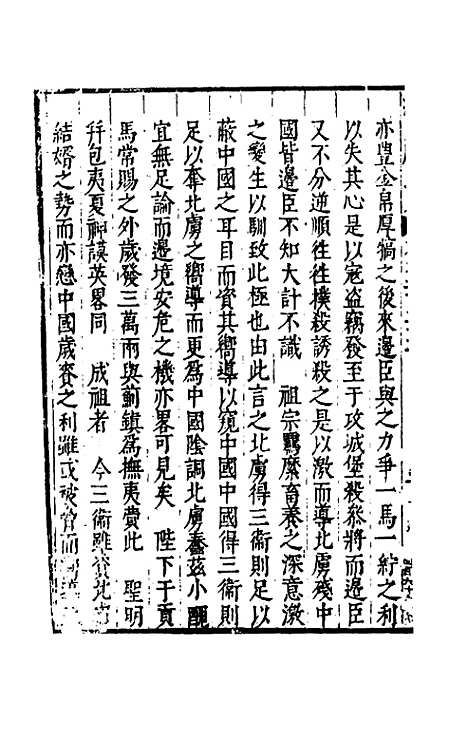 亦豊金帛厚犒之後來邊臣與之力爭一馬一紵之利
以失其心是以寇盗竊發至于攻城堡殺叅將而邊臣
又不分逆順徃徃撲殺誘殺之是以激而導北虜殘中
國皆邊臣不知大計不識　祖宗羈縻畜養之深意激
之變生以馴致此極也由此言之北虜得三衞則足以
蔽中國之耳目而資其嚮導以窺中國中國得三衞則
足以奪北虜之嚮導而更為中國陰詗北虜蠢茲小醜
宜無足論而邊境安危之機亦畧可見矣　陛下于貢
馬常賜之外歲發三萬兩與薊鎮為撫夷費此　聖明
幷包夷夏神謨英畧同　成祖者　今三衞雖資北虜
結婚之勢而亦戀中國歲賚之利雖或被脅而